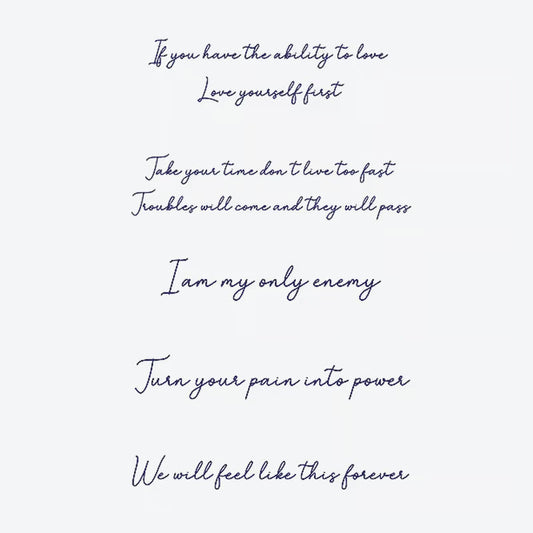 If you have the ability to love
Love yourself first
Take your time don't live too fast
Troubles will come and they will pass
I am my only enemy
Turn your pain into power
We will feel like this forever